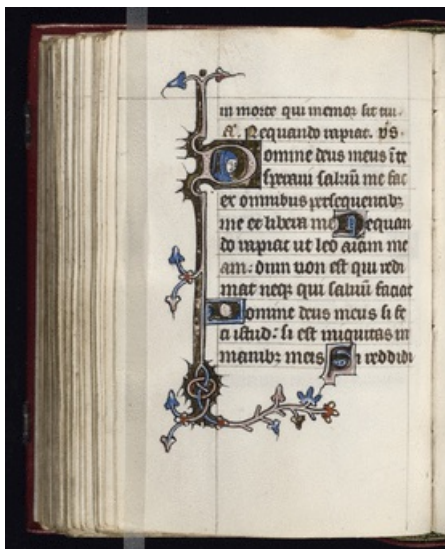 in morte qui memor sit tui.
A. Nequando rapiat. ps.
Domine deus meus i te
speraui saluū me fac
ex omnibus persequentibȝ
me et libera me Nequan
do rapiat ut leo aīam me
am: dum non est qui redi
mat neqȝ qui saluū faciat
Domine deus meus si fe
ci istud: si est iniquitas in
manibȝ meis Si reddidi